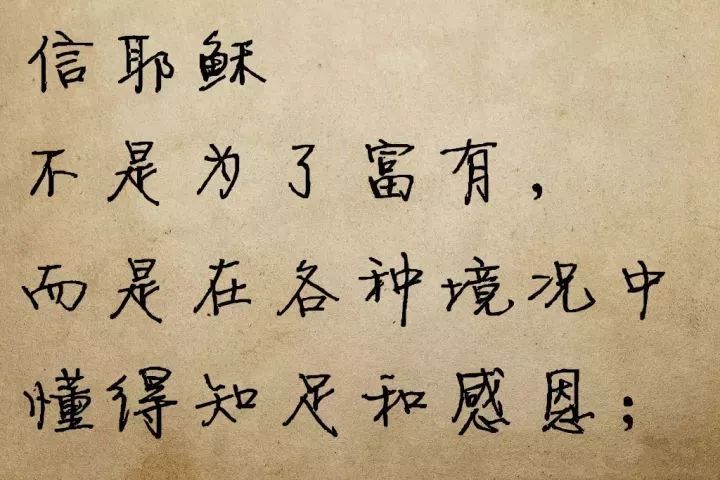 信耶稣
不是为了富有，
而是在各种境况中
懂得知足和感恩；